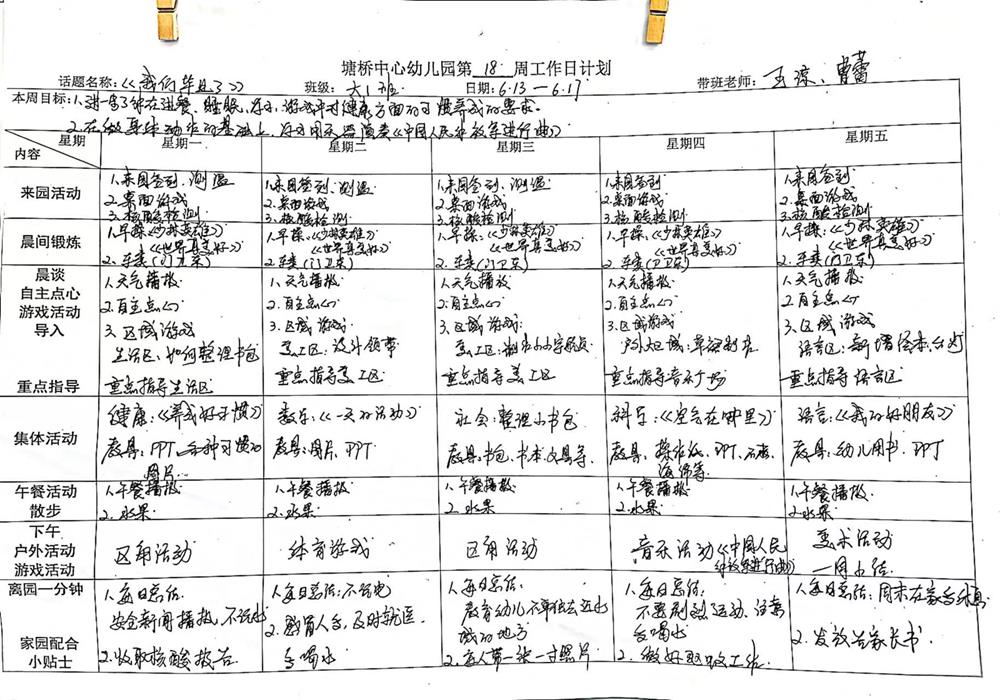 塘桥中心幼儿园第 18 周工作日计划
话题名称:《我们毕业了》 班级: 大1班 日期: 6.13—6.17 带班老师: 王凉、曹蕾
本周目标: 在进餐、睡眠、游戏中对健康方面的习惯养成的要求。
2.在做 动作的基础上, 演奏《中国人民解放军进行曲》
星期 内容 星期一 星期二 星期三 星期四 星期五
来园活动
1.来园签到、测温 1.来园签到、测温 1.来园签到、测温 1.来园签到 1.来园签到
2.桌面游戏 2.桌面游戏 2.桌面游戏 2.桌面游戏 2.桌面游戏
3.核酸检测 3.核酸检测 3.核酸检测 3.核酸检测 3.核酸检测
晨间锻炼
1.早操:《少林英雄》 1.早操:《少林英雄》 1.早操:《少林英雄》 1.早操:《少林英雄》 1.早操:《少林英雄》
《世界真美好》 《世界真美好》 《世界真美好》 《世界真美好》 《世界真美好》
晨谈
自主点心
游戏活动
导入
1.天气播报 1.天气播报 1.天气播报 1.天气播报 1.天气播报
2.自主点心 2.自主点心 2.自主点心 2.自主点心 2.自主点心
3.区域游戏 3.区域游戏 3.区域游戏: 3.区域游戏 3.区域游戏
生活区:如何整理书包 美工区:设计领带 美工区: 户外区域: 语言区:新增绘本、台灯
重点指导
重点指导生活区 重点指导美工区 重点指导美工区 重点指导音乐广场 重点指导语言区
集体活动
健康:《养成好习惯》 数学:《一天的活动》 社会:整理小书包 科学:《空气在哪里》 语言:《我的好朋友》
教具:PPT、各种习惯的 教具:图片、PPT 教具:书包、书本、文具等 教具:操作纸、PPT、 教具:幼儿用书、PPT
图片 海绵等
午餐活动
散步
1.午餐播报 1.午餐播报 1.午餐播报 1.午餐播报 1.午餐播报
2.水果 2.水果 2.水果 2.水果 2.水果
下午
户外活动
游戏活动
区角活动 体育游戏 区角活动 音乐活动《中国人民 美术活动
解放军进行曲》
离园一分钟
1.每日总结: 1.每日总结:不玩电 1.每日总结: 1.每日总结: 1.每日总结:周末在家
安全新闻播报,不玩电 2.感冒人多,及时就医, 教育幼儿不单独去近水 不要剧烈运动、注意
多喝水 域的地方 多喝水
家园配合
小贴士
2.收取核酸报告 2.每人带一张一寸照片 2.做好 工作 2.发放告家长书